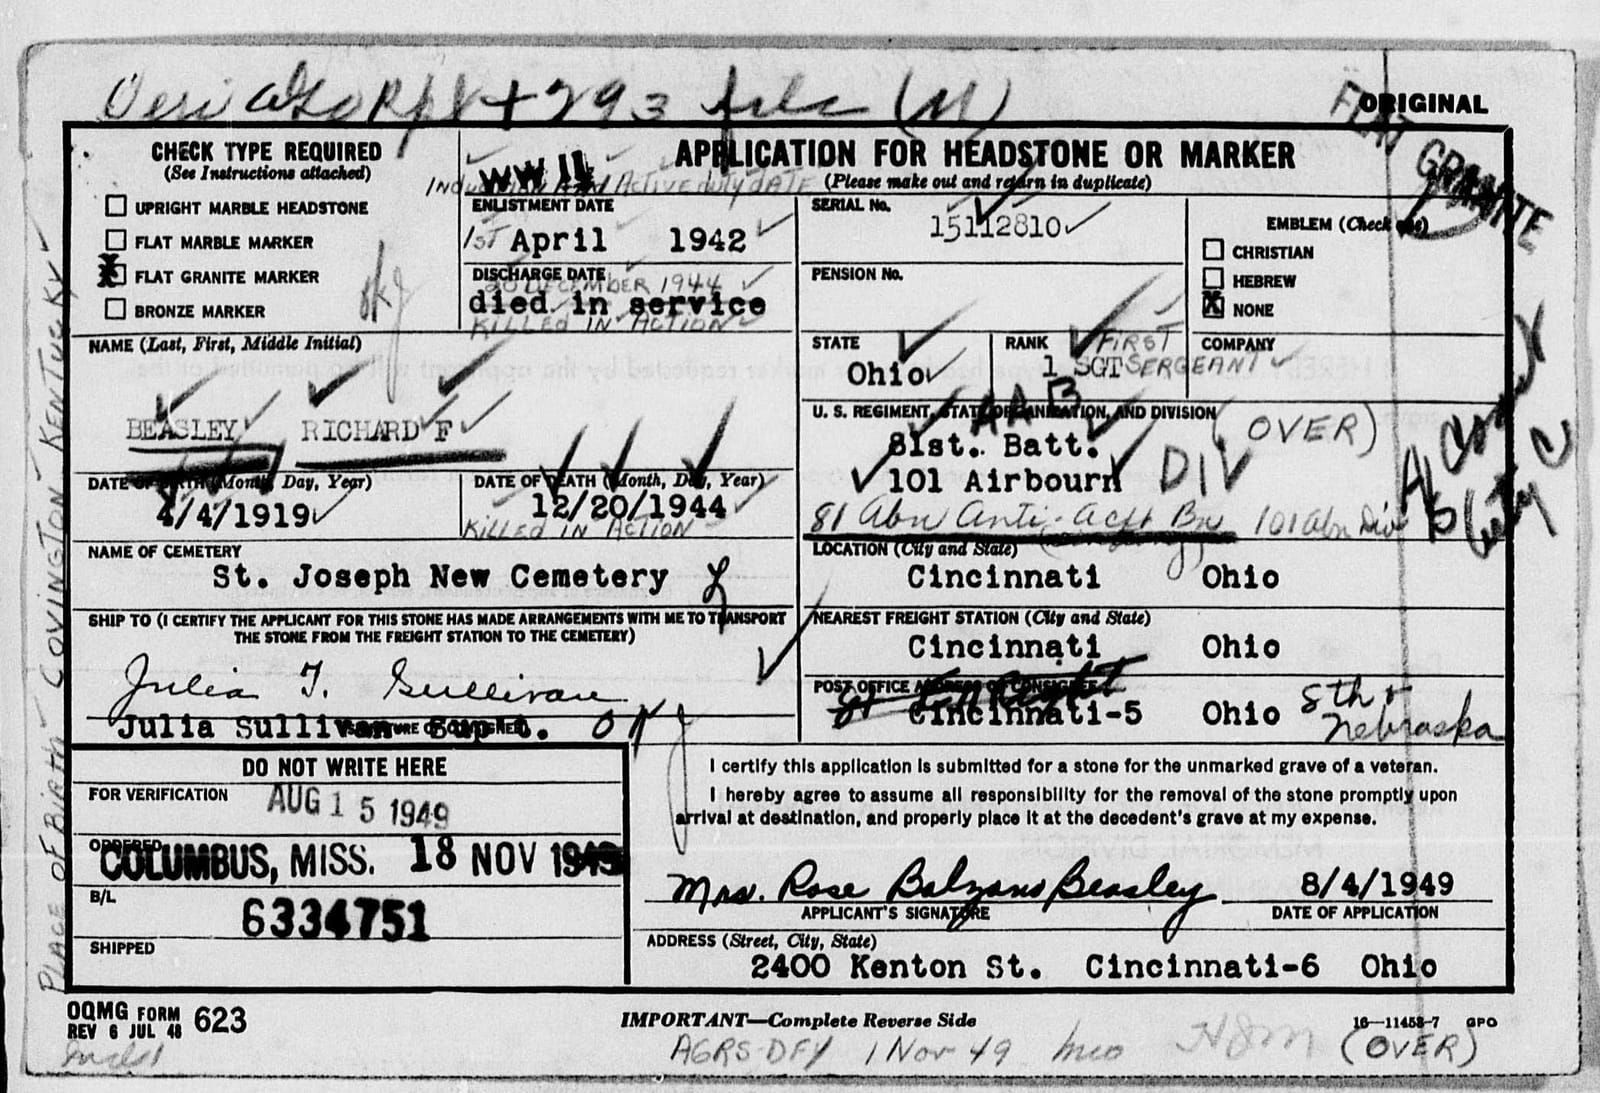 293 file (M)
ORIGINAL
FLAT GRANITE
CHECK TYPE REQUIRED
(See Instructions attached)
UPRIGHT MARBLE HEADSTONE
FLAT MARBLE MARKER
X FLAT GRANITE MARKER
BRONZE MARKER
WW II
APPLICATION FOR HEADSTONE OR MARKER
(Please make out and return in duplicate)
INDUCTION AND ACTIVE DUTY DATE
ENLISTMENT DATE
1ST April 1942
DISCHARGE DATE
20 DECEMBER 1944
died in service
KILLED IN ACTION
SERIAL No.
15112810
PENSION No.
EMBLEM (Check one)
CHRISTIAN
HEBREW
X NONE
STATE
Ohio
RANK
FIRST
1 SGT SERGEANT
COMPANY
NAME (Last, First, Middle Initial)
BEASLEY RICHARD F
U. S. REGIMENT, STATE ORGANIZATION, AND DIVISION
AAB
(OVER)
81st. Batt.
101 Airbourn DIV
81 Abn Anti-Acft Bn 101 Abn Div
DATE OF BIRTH (Month, Day, Year)
4/4/1919
DATE OF DEATH (Month, Day, Year)
12/20/1944
KILLED IN ACTION
NAME OF CEMETERY
St. Joseph New Cemetery
LOCATION (City and State)
Cincinnati Ohio
SHIP TO (I CERTIFY THE APPLICANT FOR THIS STONE HAS MADE ARRANGEMENTS WITH ME TO TRANSPORT
THE STONE FROM THE FREIGHT STATION TO THE CEMETERY)
Julia T. Sullivan
Julia Sullivan Supt.
OK
NEAREST FREIGHT STATION (City and State)
Cincinnati Ohio
POST OFFICE ADDRESS OF CONSIGNEE
Cincinnati-5 Ohio 8th &
Nebraska
DO NOT WRITE HERE
FOR VERIFICATION
AUG 15 1949
ORDERED
COLUMBUS, MISS. 18 NOV 1949
B/L
6334751
SHIPPED
I certify this application is submitted for a stone for the unmarked grave of a veteran.
I hereby agree to assume all responsibility for the removal of the stone promptly upon
arrival at destination, and properly place it at the decedent's grave at my expense.
Mrs. Rose Balzano Beasley 8/4/1949
APPLICANT'S SIGNATURE DATE OF APPLICATION
ADDRESS (Street, City, State)
2400 Kenton St. Cincinnati-6 Ohio
PLACE OF BIRTH COVINGTON KENTUCKY
OQMG FORM 623
REV 6 JUL 48
IMPORTANT—Complete Reverse Side
16—11453-7 GPO
AGRS-DFY 1 Nov 49
(OVER)